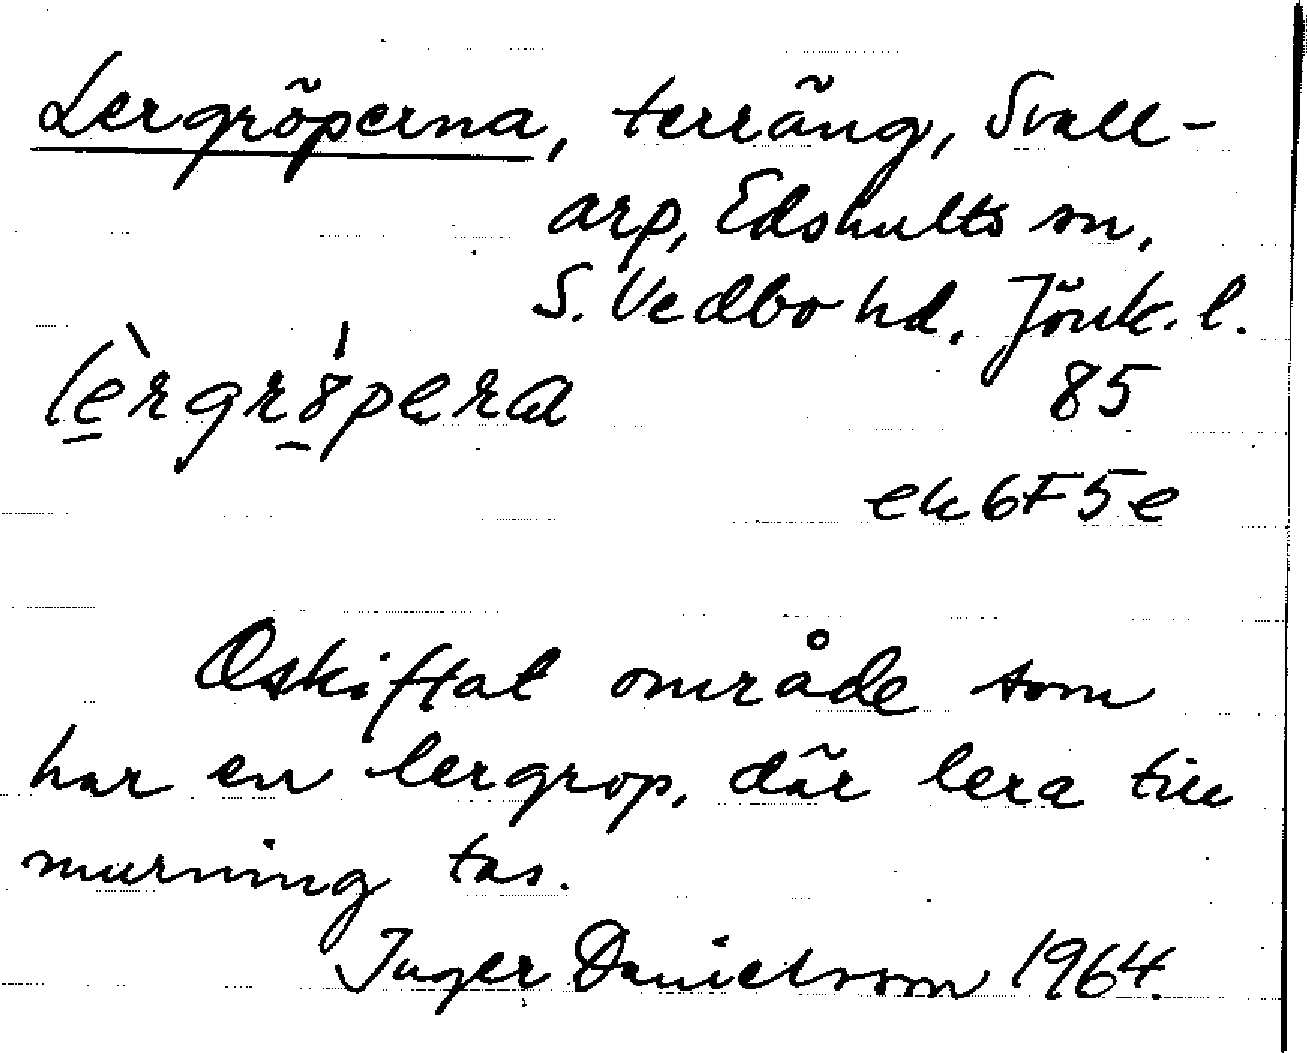 Lergröperna, terräng, Svall-
arp, Edshults sn,
S. Vedbo hd. Jönk. l.
lèrgröpera 85
ek 6F5e
Oskiftat område som
har en lergrop, där lera till
murning tas.
Inger Danielsson 1964.